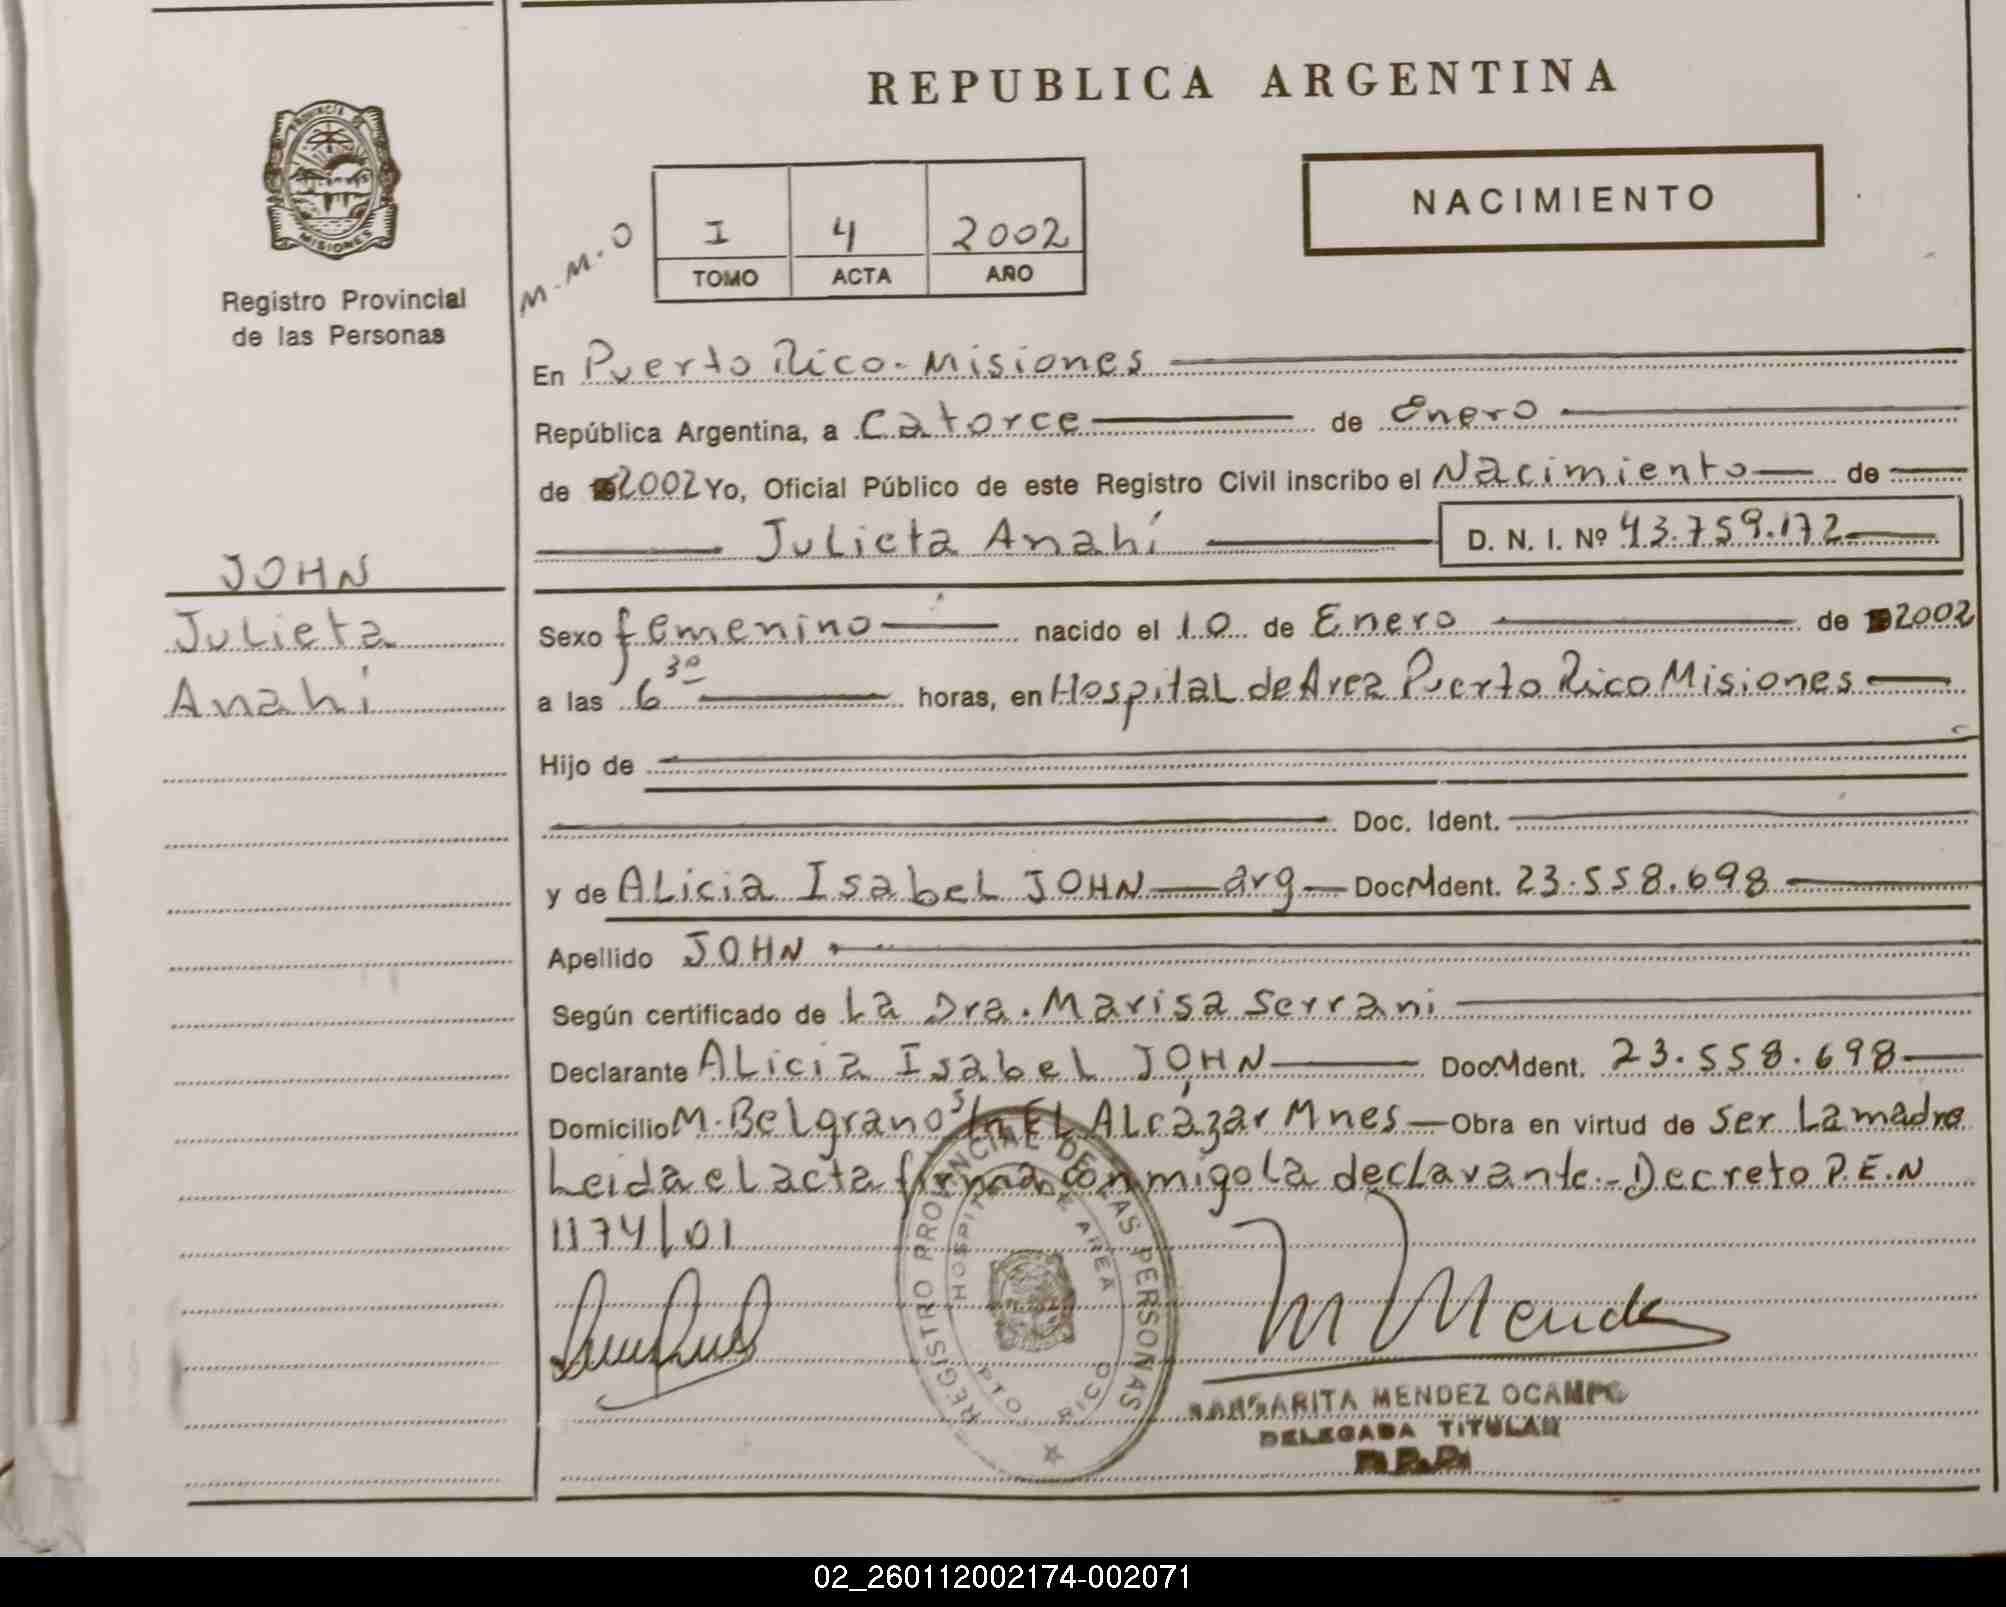 REPUBLICA ARGENTINA
PROVINCIA DE
MISIONES
Registro Provincial
de las Personas
NACIMIENTO
M.M.O
I 4 2002
TOMO ACTA AÑO
En Puerto Rico - Misiones
República Argentina, a Catorce de Enero
de 2002 Yo, Oficial Público de este Registro Civil inscribo el Nacimiento de
Julieta Anahí D. N. I. Nº 43.759.172
JOHN
Julieta
Anahí
Sexo femenino nacido el 10 de Enero de 2002
a las 6 30 horas, en Hospital de Area Puerto Rico Misiones
Hijo de
Doc. Ident.
y de Alicia Isabel JOHN arg Doc. Ident. 23.558.698
Apellido JOHN
Según certificado de La Dra. Marisa Serrani
Declarante Alicia Isabel JOHN Doc. Ident. 23.558.698
Domicilio M. Belgrano s/n El Alcázar Mnes Obra en virtud de ser La madre
Leida el acta firma conmigo la declarante.- Decreto P.E.N
1174/01
REGISTRO PROVINCIAL DE LAS PERSONAS
HOSPITAL DE AREA
PTO. RICO
M Mendez
MARGARITA MENDEZ OCAMPO
DELEGADA TITULAR
02_260112002174-002071